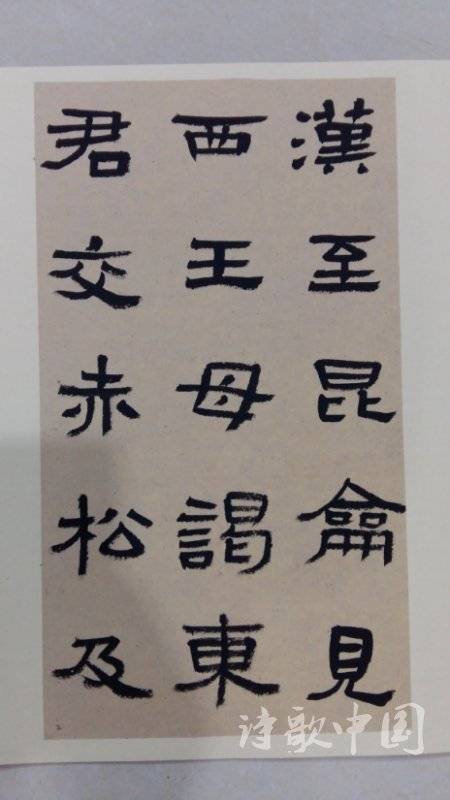 漢至昆侖見
西王母謁東
君交赤松及
诗歌中国